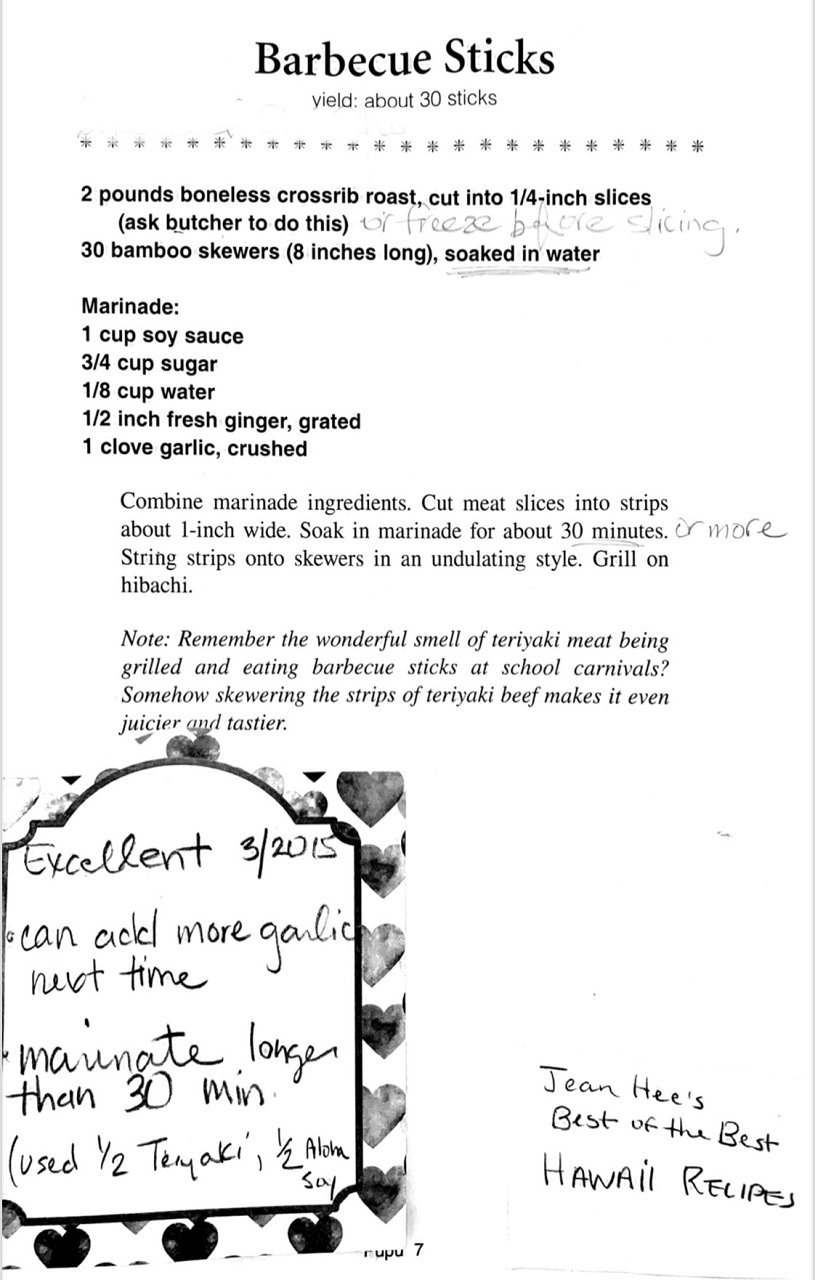 Barbecue Sticks
yield: about 30 sticks
* * * * * * * * * * * * * * * * * * * * * * * *
2 pounds boneless crossrib roast, cut into 1/4-inch slices
(ask butcher to do this) or freeze before slicing.
30 bamboo skewers (8 inches long), soaked in water
Marinade:
1 cup soy sauce
3/4 cup sugar
1/8 cup water
1/2 inch fresh ginger, grated
1 clove garlic, crushed
Combine marinade ingredients. Cut meat slices into strips
about 1-inch wide. Soak in marinade for about 30 minutes. or more
String strips onto skewers in an undulating style. Grill on
hibachi.
Note: Remember the wonderful smell of teriyaki meat being
grilled and eating barbecue sticks at school carnivals?
Somehow skewering the strips of teriyaki beef makes it even
juicier and tastier.
Excellent 3/2015
• can add more garlic
next time
• marinate longer
than 30 min.
(used 1/2 Teriyaki, 1/2 Aloha
Soy
Jean Hee's
Best of the Best
HAWAII RECIPES
Pupu 7